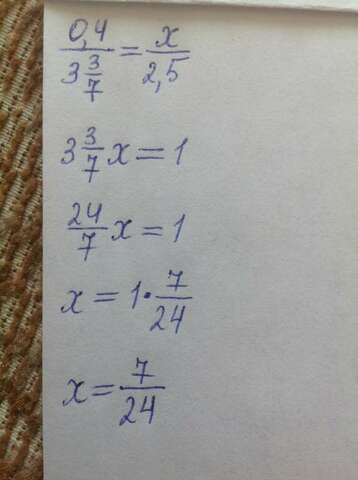 0,4/3 3/7 = x/2,5
3 3/7 x = 1
24/7 x = 1
x = 1 · 7/24
x = 7/24